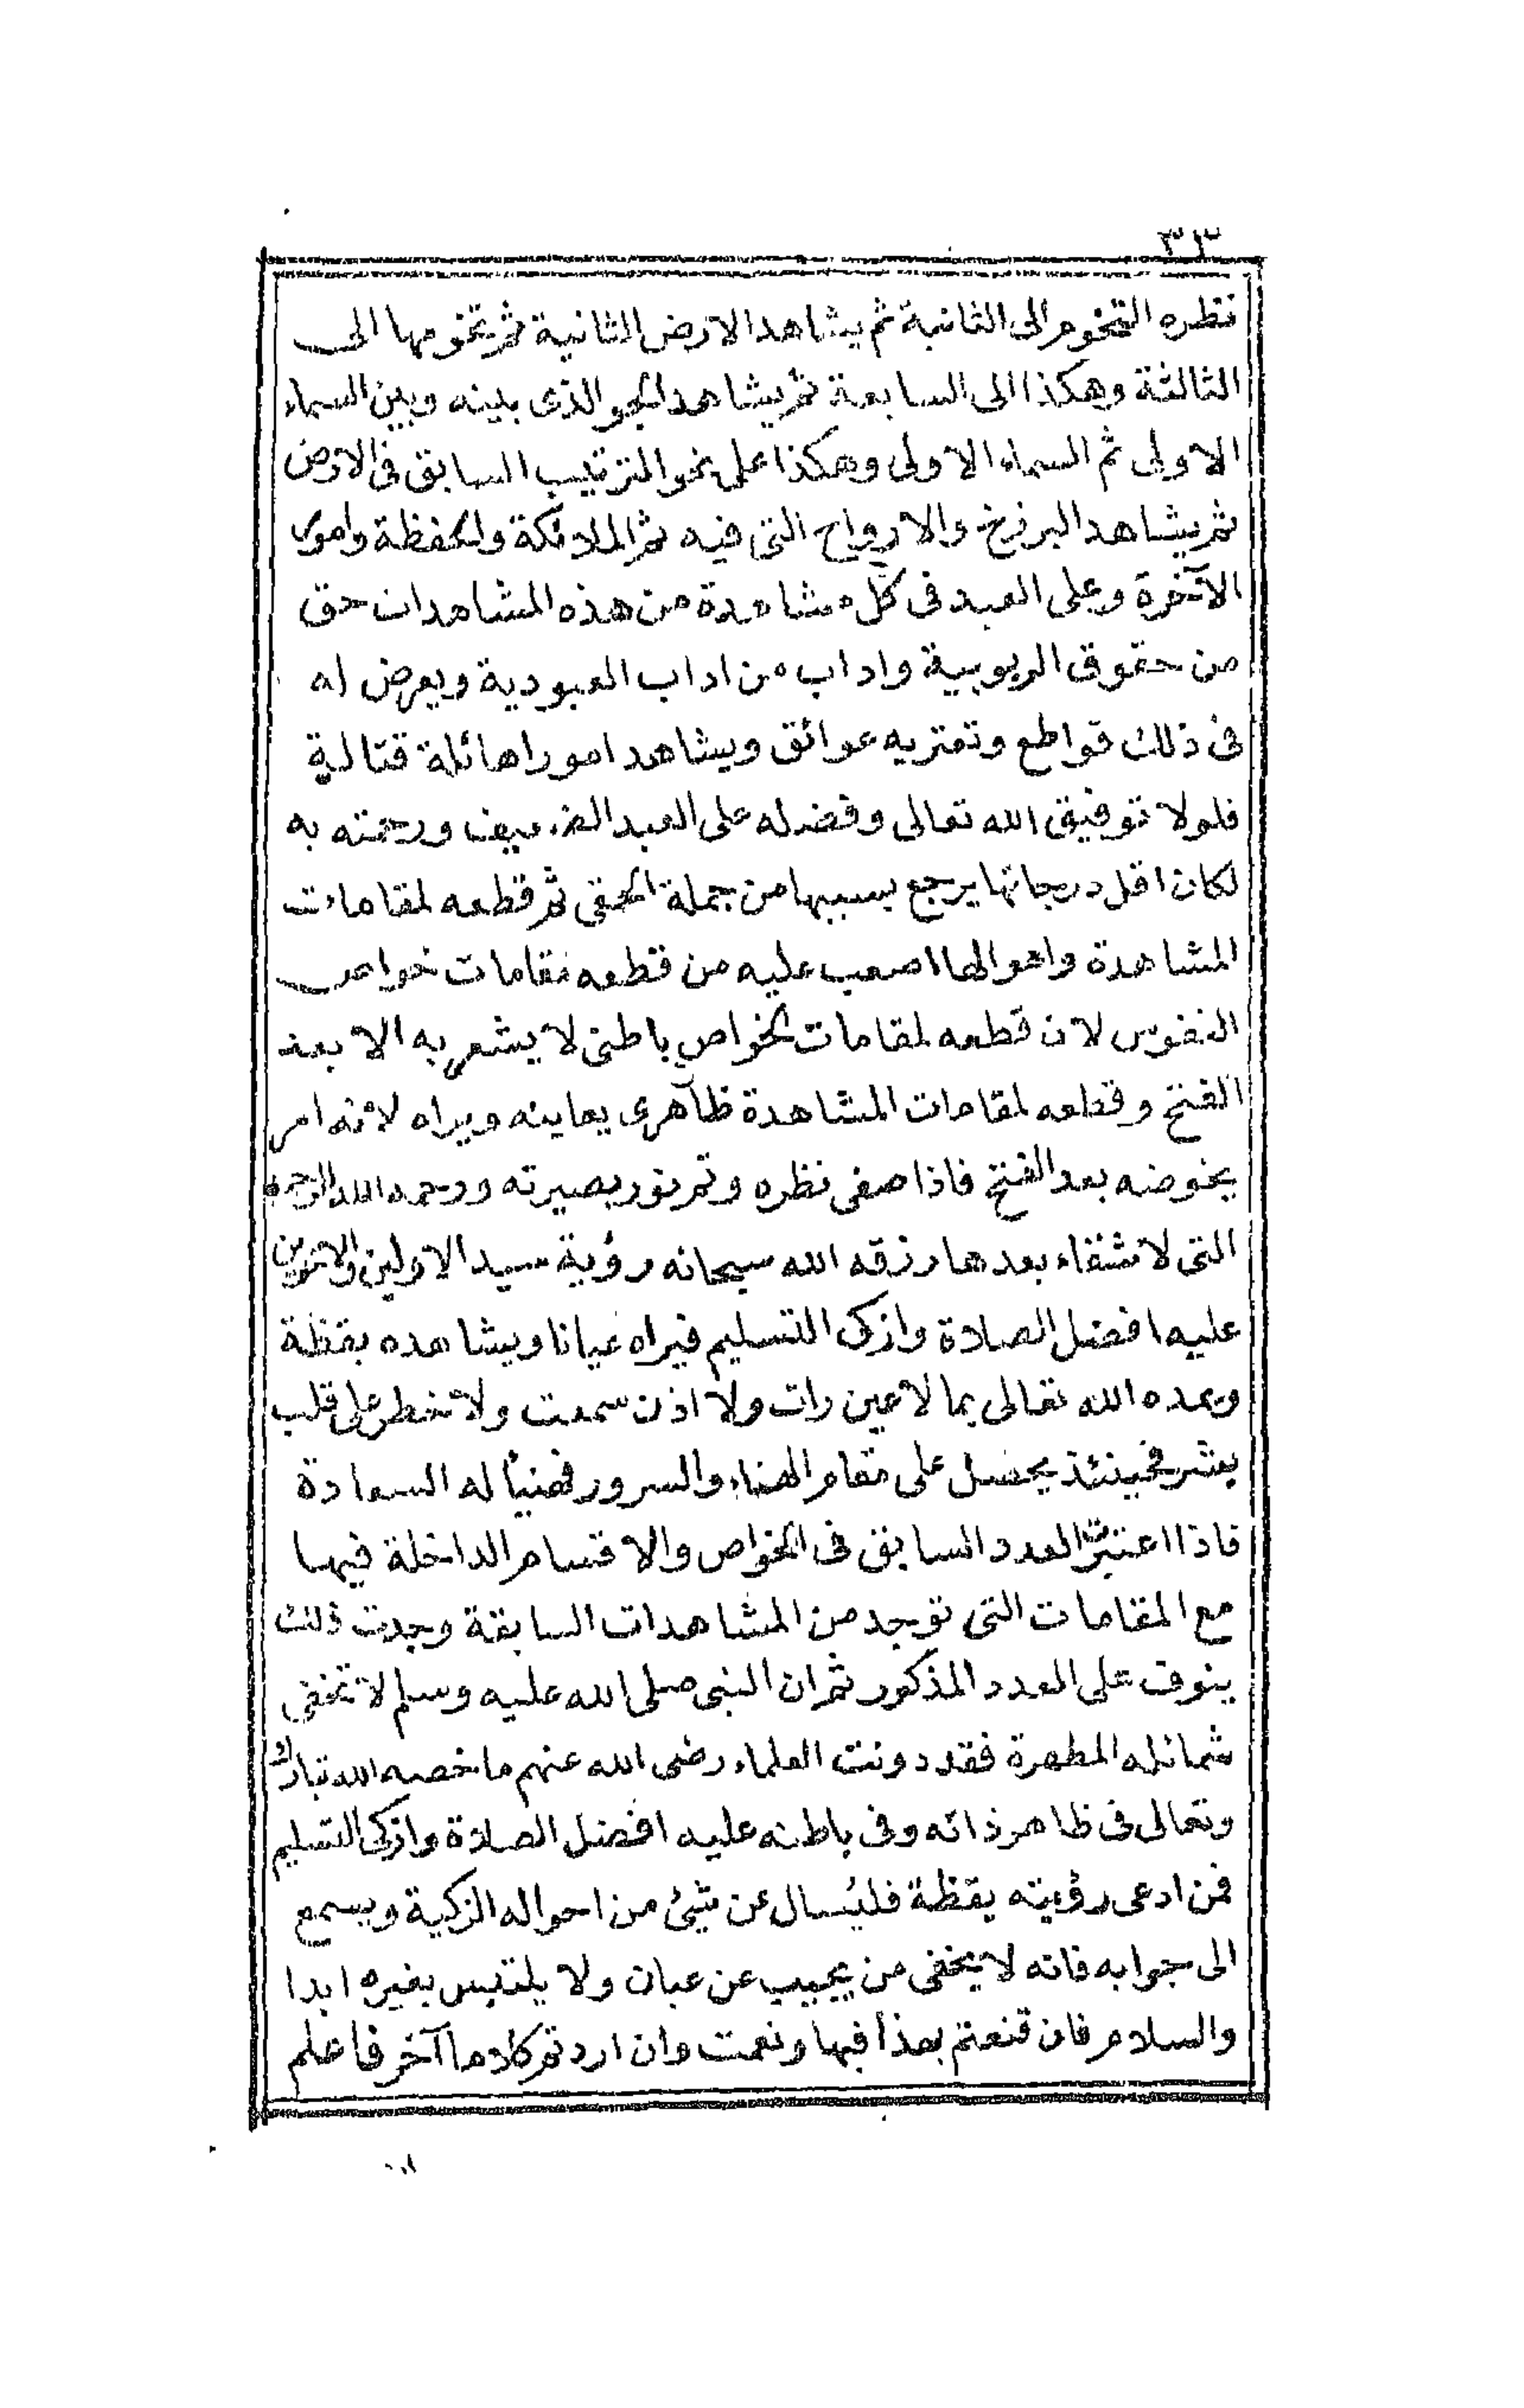 ٣٣
نظره التخوم الى الثانية ثم يشاهد الارض الثانية ثم تخومها الى
الثالثة وهكذا الى السابعة ثم يشاهد الجو الذى بينه وبين السماء
الاولى ثم السماء الاولى وهكذا على نحو الترتيب السابق فى الارض
ثم يشاهد البرزخ والارواح التى فيه ثم الملائكة والحفظة وامور
الآخرة وعلى العبد فى كل مشاهدة من هذه المشاهدات حق
من حقوق الربوبية واداب من اداب العبودية ويعرض له
فى ذلك قواطع وتعتريه عوائق ويشاهد امورا هائلة قتالية
فلولا توفيق الله تعالى وفضله على العبد الضعيف ورحمته به
لكان اقل درجاتها يرجع بسببها من جملة الحمقى ثم قطعه لمقامات
المشاهدة واهوالها اصعب عليه من قطعه مقامات خواص
النفوس لان قطعه لمقامات الخواص باطنى لا يشعر به الا بعد
الفتح وقطعه لمقامات المشاهدة ظاهرى يعاينه ويراه لانه امر
يخوضه بعد الفتح فاذا صفى نظره وتم نور بصيرته ورحمه الله الرحمة
التى لا شقاء بعدها رزقه الله سبحانه رؤية سيد الاولين والاخرين
عليه افضل الصلاة وازكى التسليم فيراه عيانا ويشاهده يقظة
ويمده الله تعالى بما لا عين رات ولا اذن سمعت ولا خطر على قلب
بشر فحينئذ يحصل على مقام الهناء والسرور فهنيأ له السعادة
فاذا اعتبرت العدد السابق فى الخواص والاقسام الداخلة فيها
مع المقامات التى توجد من المشاهدات السابقة وجدت ذلك
ينوف على العدد المذكور ثم ان النبى صلى الله عليه وسلم لا تخفى
شمائله المطهرة فقد دونت العلماء رضى الله عنهم ما خصه الله تبارك
وتعالى فى ظاهر ذاته وفى باطنه عليه افضل الصلاة وازكى التسليم
فمن ادعى رؤيته يقظة فليسال عن شيئ من احواله الزكية ويسمع
الى جوابه فانه لا يخفى من يجيب عن عيان ولا يلتبس بغيره ابدا
والسلام فان قنعتم بهذا فبها ونعمت وان اردتم كلاما آخر فاعلم